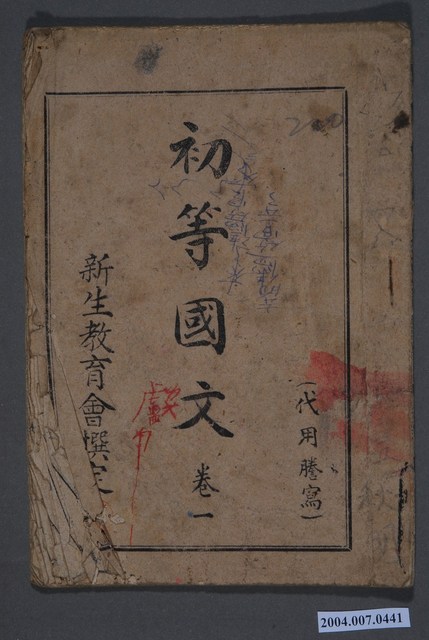 （代用謄寫）
初等國文 卷一
新生教育會撰定
2004.007.0441